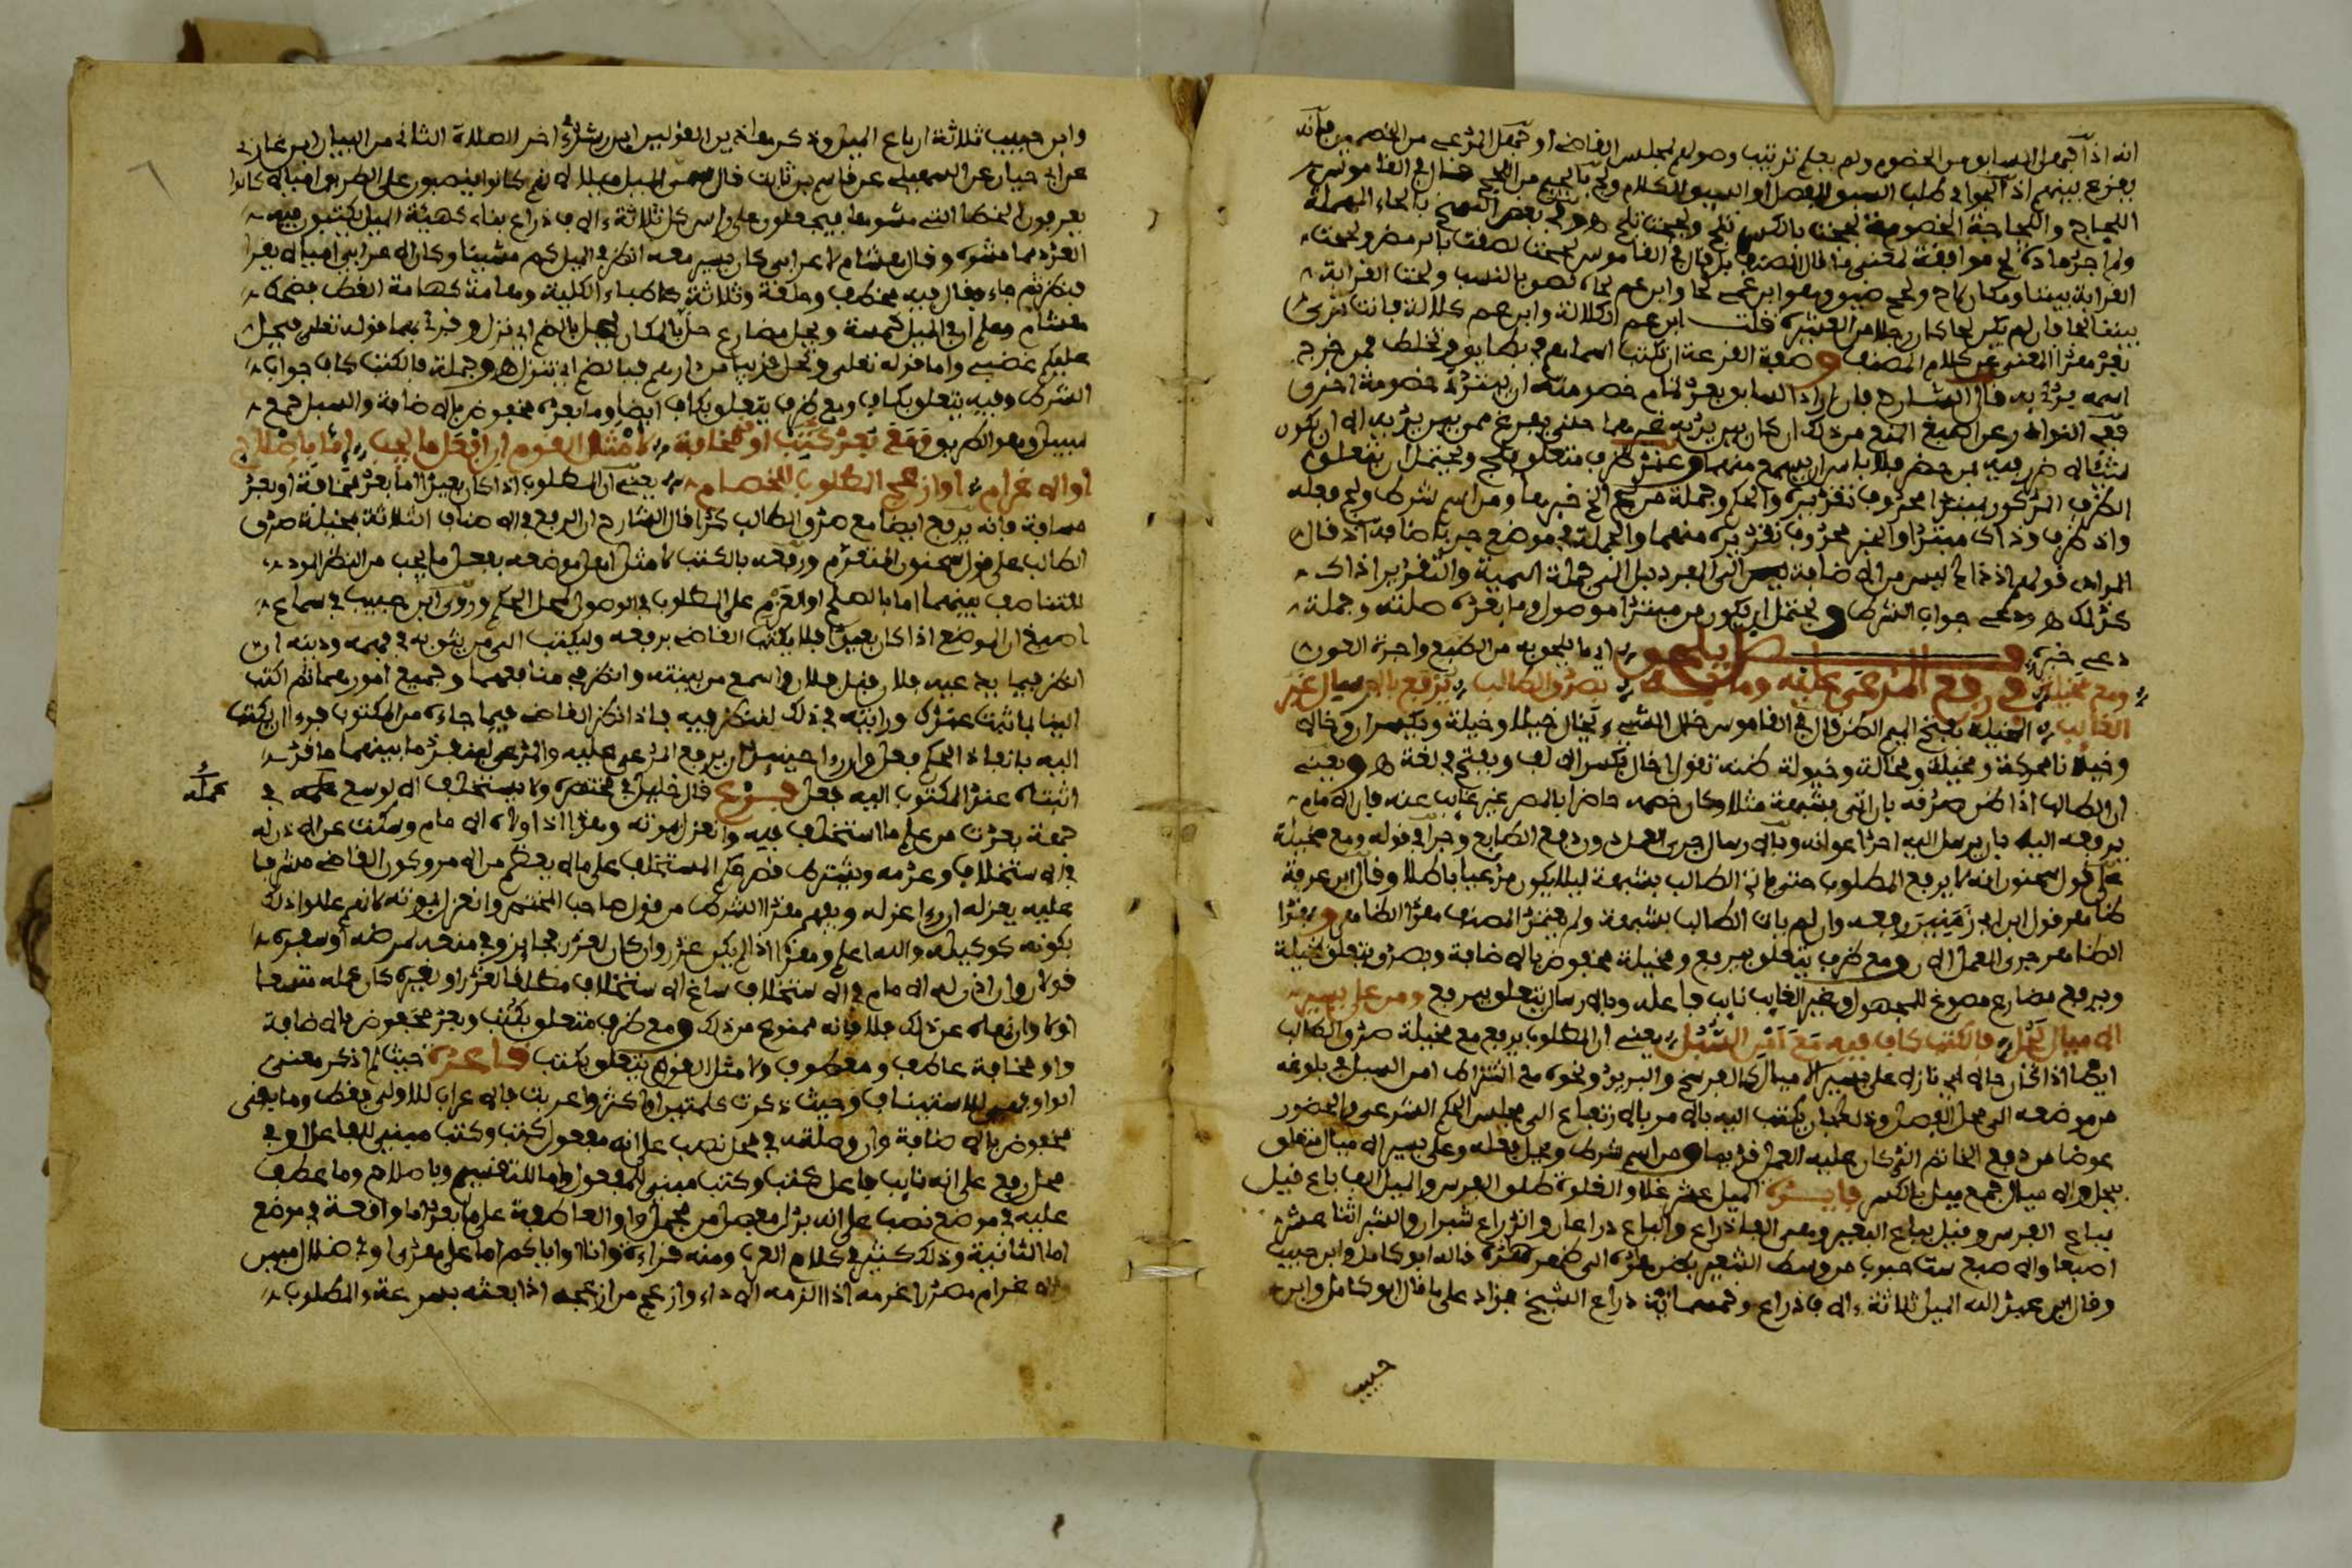 انه اذا جهل السابق من الخصوم ولم يعلم ترتيب وصولهم لمجلس القاضي او جهل المدعي من الخصمين فانه
يقرع بينهم اذا لجوا في طلب السبق للفصل او السبق للكلام
اللجاج واللجاجة الخصومة لججت بالكسر تلج ولججت تلج هـ وفي بعض النسخ بالحاء المهملة
ولم اجد مادة لح موافقة لمعنى ما قال المصنف بل قال في القاموس لححت
القرابة بيننا ومكان لاح ولحح ضيق وهو ابن عمي لحا وابن عم لحا ولحت القرابة
بيننا لحا فان لم يكن لحا وكان رجلا من العشيرة قلت ابن عم الكلالة وابن عم كلالة فانت ترى
بعد هذا المعنى عن كلام المصنف وصفة القرعة ان تكتب اسماؤهم في بطايق وتخلط فمن خرج
اسمه بدئ به قال الشارح فان اراد السابق بعد تمام خصومته ان يبتدئ خصومة اخرى
ففي النوادر عن اصبغ المنع من ذلك ان كان بين يديه غيرهما حتى يفرغ ممن بين يديه الا ان يكون
شيئا لا ضرر فيه بمن حضر فلا باس ان يسمع منهما وعند ظرف متعلق بلج ويحتمل ان يتعلق
الظرف المذكور
واذ ظرف وذاك مبتدا والخبر محذوف تقديره منهما والجملة في موضع جر باضافة اذ قال
المرادي قولهم اذ ذاك ليس من الاضافة الى المفرد بل الى جملة اسمية والتقدير اذ ذاك
كذلك هـ ودعي جواب الشرط ويحتمل ان يكون من مبتدا موصول وما بعده صلته وجملة
دعي خبره فصل في رفع المدعى عليه وما يلحق به اي ما يلحق به من الطبع واجرة العون
ومع مخيلة بصدق الطالب يرفع بالارسال غير
الغايب المخيلة بفتح الميم الظن قال في القاموس خال الشيء يخال خيلا وخيلة ويكسران وخالا
وخيلانا محركة ومخيلة ومخالة وخيلولة ظنه تقول اخال بكسر الالف ويفتح في لغة هـ ويعني
ان الطالب اذا ظن صدقه بان اتى بشبهة مثلا وكان خصمه حاضرا بالمصر غير غايب عنه فان الامام
يرفعه اليه بان يرسل اليه احد اعوانه وبالارسال جرى العمل دون دفع الطابع وجرى في قوله ومع مخيلة
على قول سحنون انه لا يرفع المطلوب حتى ياتي الطالب بشبهة ليلا يكون مدعيا باطلا وقال ابن عرفة
ظاهر قول ابن ابي زمنين رفعه وان لم يات الطالب بشبهة ولم يعتمد المصنف هذا الظاهر وهذا
الظاهر جرى العمل الان ومع ظرف يتعلق بيرفع ومخيلة مخفوض بالاضافة وبصدق يتعلق بمخيلة
ويرفع مضارع مصوغ للمجهول وغير الغايب نايب فاعله وبالارسال يتعلق بيرفع ومن على يسير
الاميال يحل فالكتب كاف فيه مع امن السبل يعني ان المطلوب يرفع مع مخيلة صدق الطالب
ايضا اذا كان حالا اي نازلا على يسير الاميال كالفرسخ والبريد ونحوه مع اشتراط امن السبل في بلوغه
من موضعه الى محل الفصل وذلك بان يكتب اليه بالامر بالارتفاع الى مجلس الحكم الشرعي والحضور
عوضا من دفع الخاتم الذي كان عليه العمل قديما ومن اسم شرط ويحل فعله وعلى يسير الاميال متعلق
بيحل والاميال جمع ميل بالكسر فايدة الميل عشر غلاو الغلوة طلق الفرس والميل الفا باع قيل
بباع الفرس وقيل بباع البعير وهي الفا ذراع والباع ذراعان والذراع شبران والشبر اثنا عشر
اصبعا والاصبع ست حبوب من وسط الشعير بطن هذه الى ظهر هذه قاله ابو كامل وابن حبيب
وقال ابن عبد البر الميل ثلاثة الاف ذراع وخمسماية ذراع الشيخ فزاد على ما قال ابو كامل وابن
حبيب
وابن حبيب ثلاثة ارباع الميل وذكر هاذين القولين ابن رشد اخر الصلاة الثاني من البيان ابن غازي
عن ابي حيان عن السهيلي عن قاسم بن ثابت قال سمي الميل ميلا لانهم كانوا ينصبون على الطريق اميالا كانوا
يعرفون الخطا التي مشوها فيجعلون على راس كل ثلاثة الاف ذراع بناء كهيئة الميل يكتبون فيه
العدد مما مشوه وقال هشام لاعرابي كان يسير معه انظر في الميل كم مشينا وكان الاعرابي اميا لا يقرا
فنظر ثم جاء وقال فيه مخطف وحلقة وثلاثة كاطباء الكلبة وهامة كهامة القطا فضحك
هشام وعلم ان في الميل خمسة ويحل مضارع حل بالمكان يحل بالضم اي نزل وقرئ بهما قوله تعلى فيحل
عليكم غضبي واما قوله تعلى او تحل قريبا من دارهم فبالضم اي تنزل هـ وجملة فالكتب كاف جواب
الشرط وفيه يتعلق بكاف ومع ظرف يتعلق بكاف ايضا وما بعده مخفوض بالاضافة والسبل جمع
سبيل وهو الطريق ومع بعد كتب او مخافة لامثل القوم ان افعل ما يجب اما باصلاح
او الاغرام او ازعج المطلوب للخصام يعني ان المطلوب اذا كان بعيدا اما بعد مخافة او بعد
مسافة فانه يرفع ايضا مع صدق الطالب كذا قال الشارح ان الرفع في الاصناف الثلاثة بمخيلة صدق
الطالب على قول سحنون المتقدم ورفعه بالكتب لامثل اهل موضعه بفعل ما يجب من النظر المودي
للتناصف بينهما اما بالصلح او الغرم على المطلوب في الوصول لمحل الحكم وروى ابن حبيب في سماع
اصبغ ان الموضع اذا كان بعيدا فلا يكتب القاضي برفعه وليكتب الى من يثق به في فهمه ودينه ان
انظر فيما يدعيه فلان قبل فلان واسمع من بينته وانظر في منافعهما وجميع امورهما ثم اكتب
الينا بما ثبت عندك ورايته في ذلك لننظر فيه فاذا نظر القاضي فيما جاءه من المكتوب فرءا ان يكتب
اليه بانفاذ الحكم فعل وان رءا حينئذ ان يرفع المدعى عليه والمدعي لبعد ما بينهما
اثبتاه عند المكتوب اليه فعل فرع قال خليل في مختصره ولا يستخلف الا لوسع عمله في
عمله
جهة بعدت من علم ما استخلف فيه وانعزل بموته وهذا اذا ولاه الامام وسكت عن الاذن له
في الاستخلاف وعدمه ويشترط علم المستخلف على ما لا بد منه وكون القاضي مشرفا
عليه يعزله ان رءا عزله ويفهم هذا الشرط من قول صاحب المختصر وانعزل بموته لانهم عللوا ذلك
بكونه كوكيله والله اعلم وهذا اذا لم يكن عذر وان كان لعذر فجايز وفي منعه لمرضه او سفره
قولان وان اذن له الامام في الاستخلاف ساغ الاستخلاف مطلقا لعذر او لغيره كان عمله متسعا
او لا وان نهاه عن ذلك فلا فانه ممنوع من ذلك ومع ظرف متعلق بكتب وبعد مخفوض بالاضافة
واو مخافة عاطف ومعطوف ولامثل القوم يتعلق بكتب قاعدة حيث لم اذكر معنى
الواو فهي للاستيناف وحيث ذكرت كلمتين او اكثر واعربت فالاعراب للاولى فقط وما بقى
مخفوض بالاضافة وان وصلته في محل نصب على انه مفعول كتب وكتب مبني للفاعل او في
محل رفع على انه نايب فاعل كتب وكتب مبني للمفعول واما للتقسيم وباصلاح وما عطف
عليه في موضع نصب على انه بدل مفصل من مجمل واو العاطفة على ما بعد اما واقعة في موضع
اما الثانية وذلك كثير في كلام العرب ومنه قراءة وانا او اياكم اما على هدى او في ضلال مبين
والاغرام مصدر اغرمه اذا الزمه الاداء وازعج من ازعجه اذا بعثه بسرعة والمطلوب